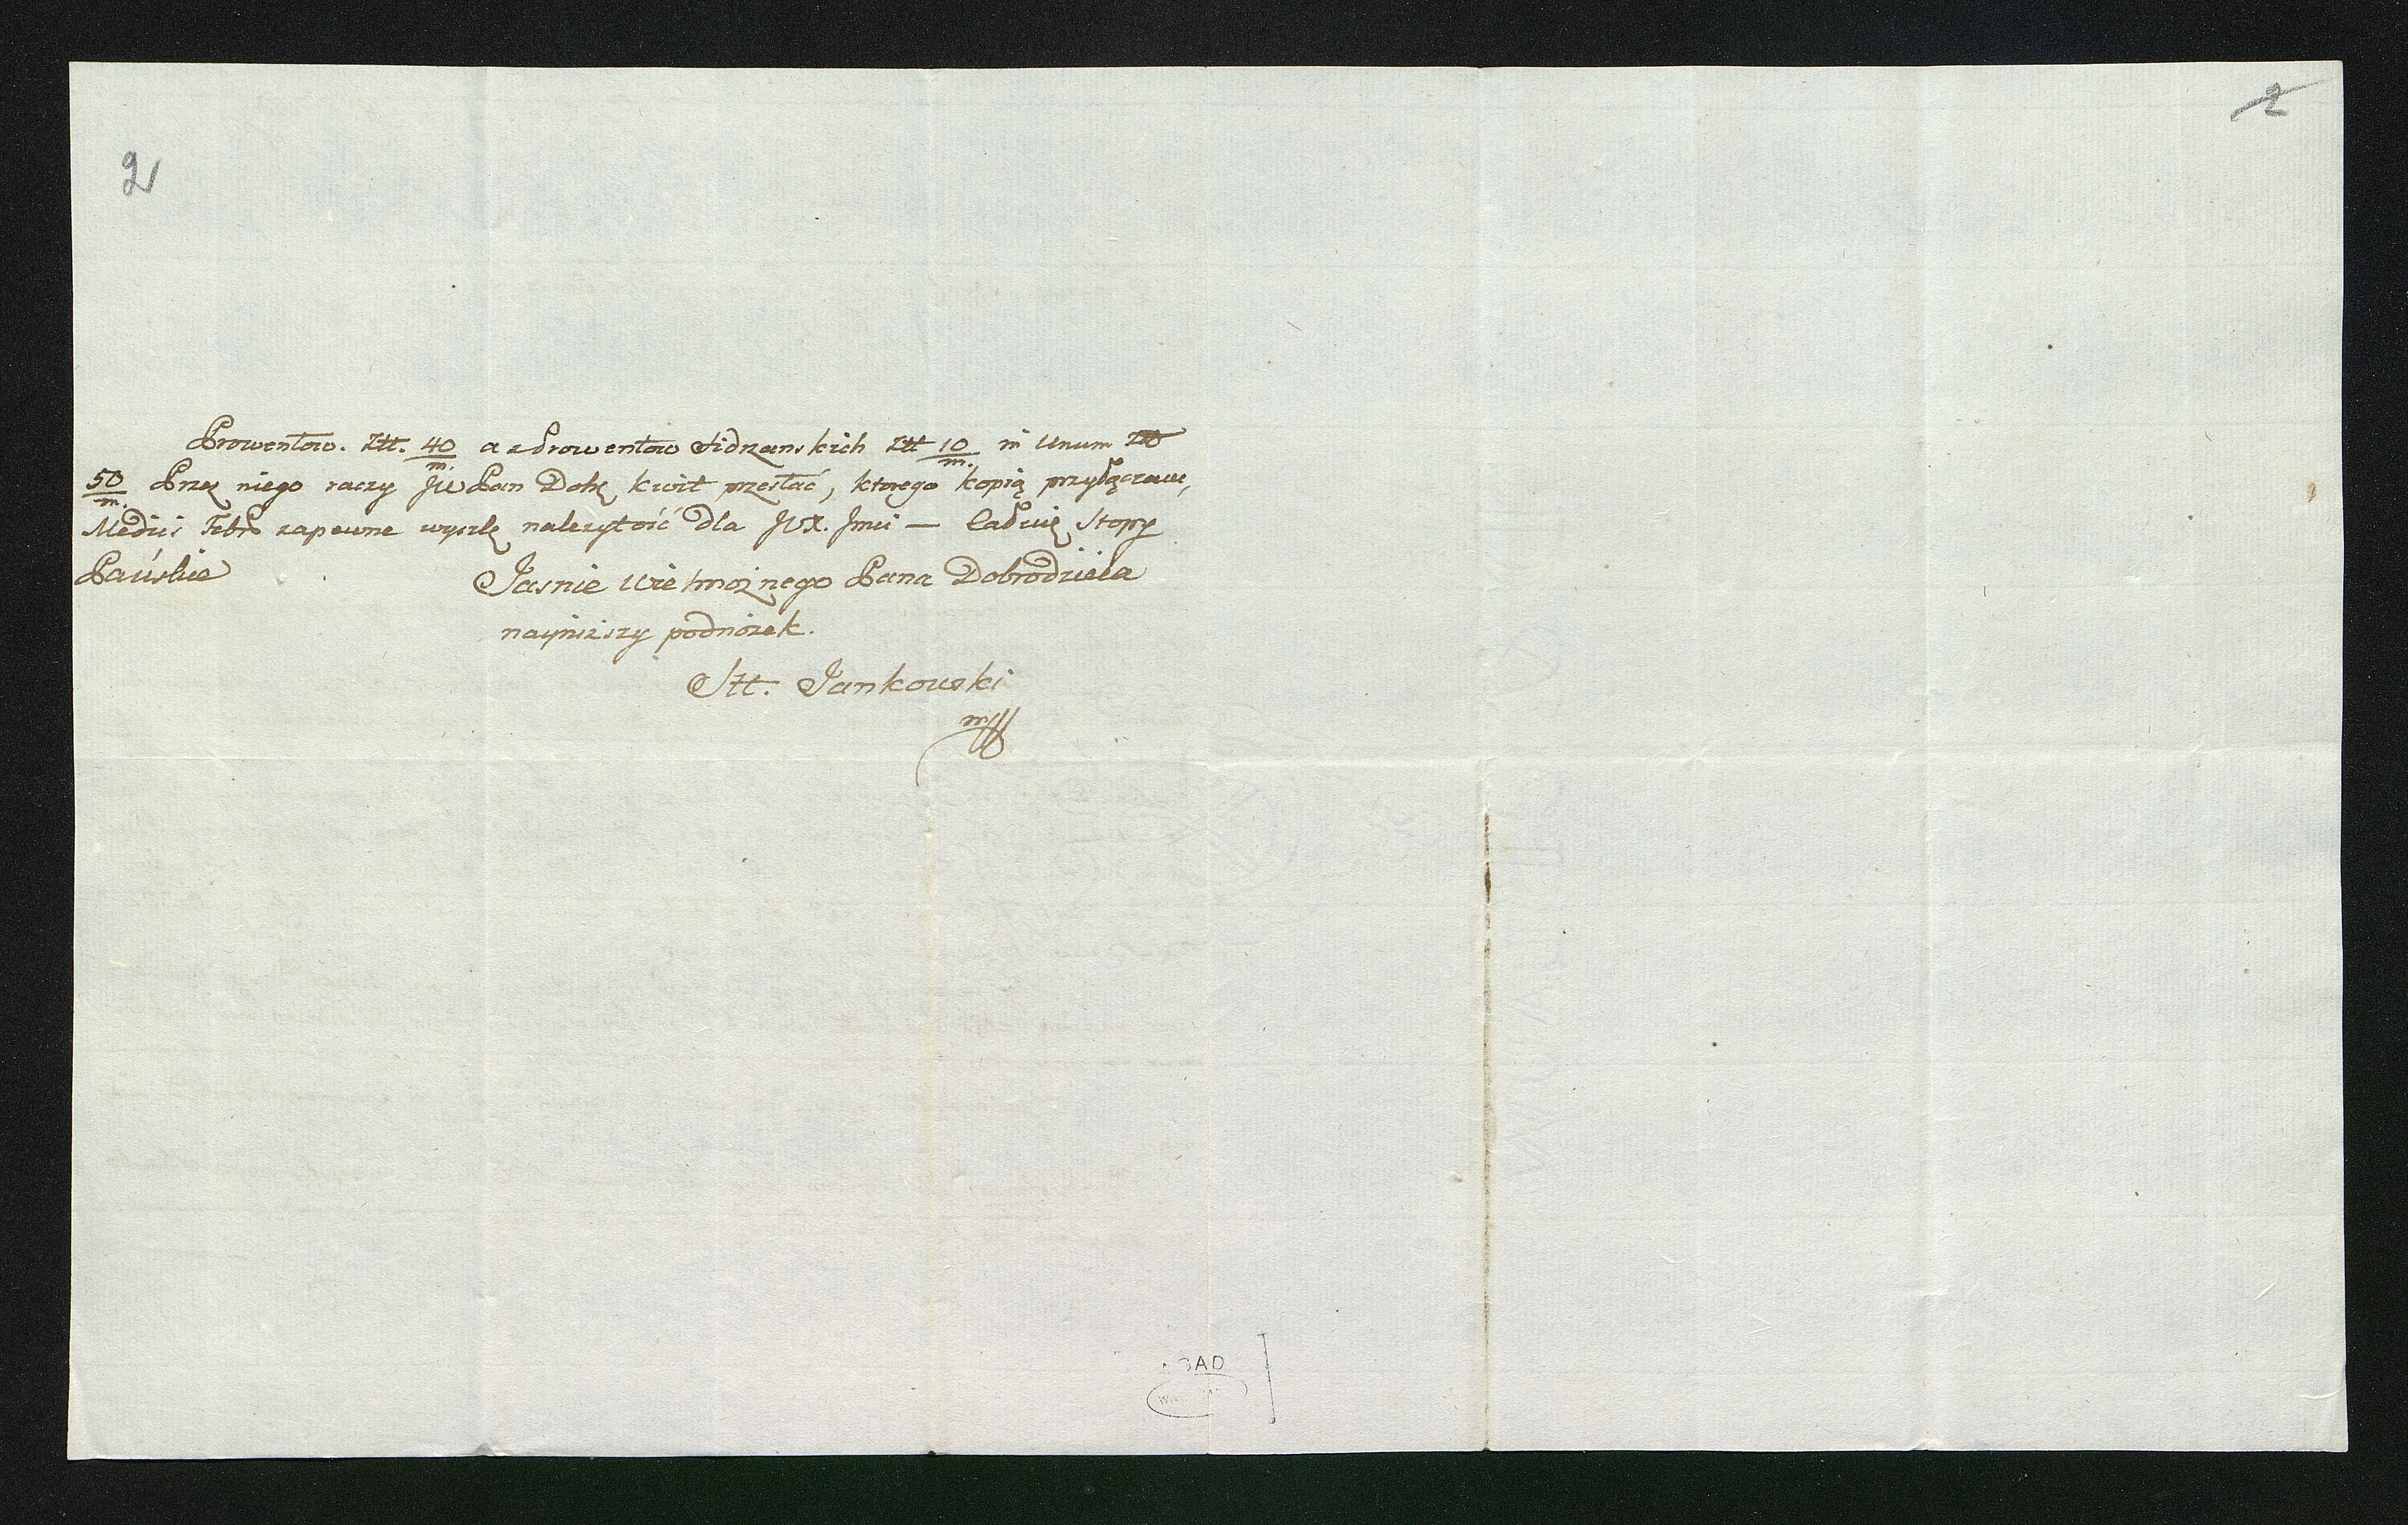 2
2
Prowentow. Złł. 40/m. a z Prowentow Sidrzanskich Złł 10/m. in Unum
50/m. Przez niego raczy JW Pan Dobr kwit przesłać, ktorego kopią przyłączam,
Mediis Febr zapewne wyszlę nalezytość dla JWX. Jmci — Całuię Stopy
Pańskie
Jasnie Wielmożnego Pana Dobrodzieia
nayniższy podnożek.
Stt. Jankowski
mpp
AD